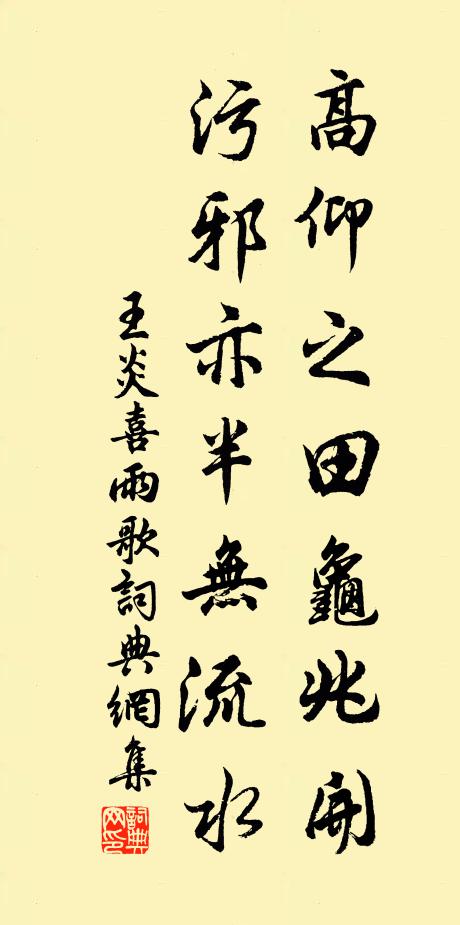 高仰之田龜兆開
污邪亦半無流水
王炎喜雨歌詞典網集
詞典網印